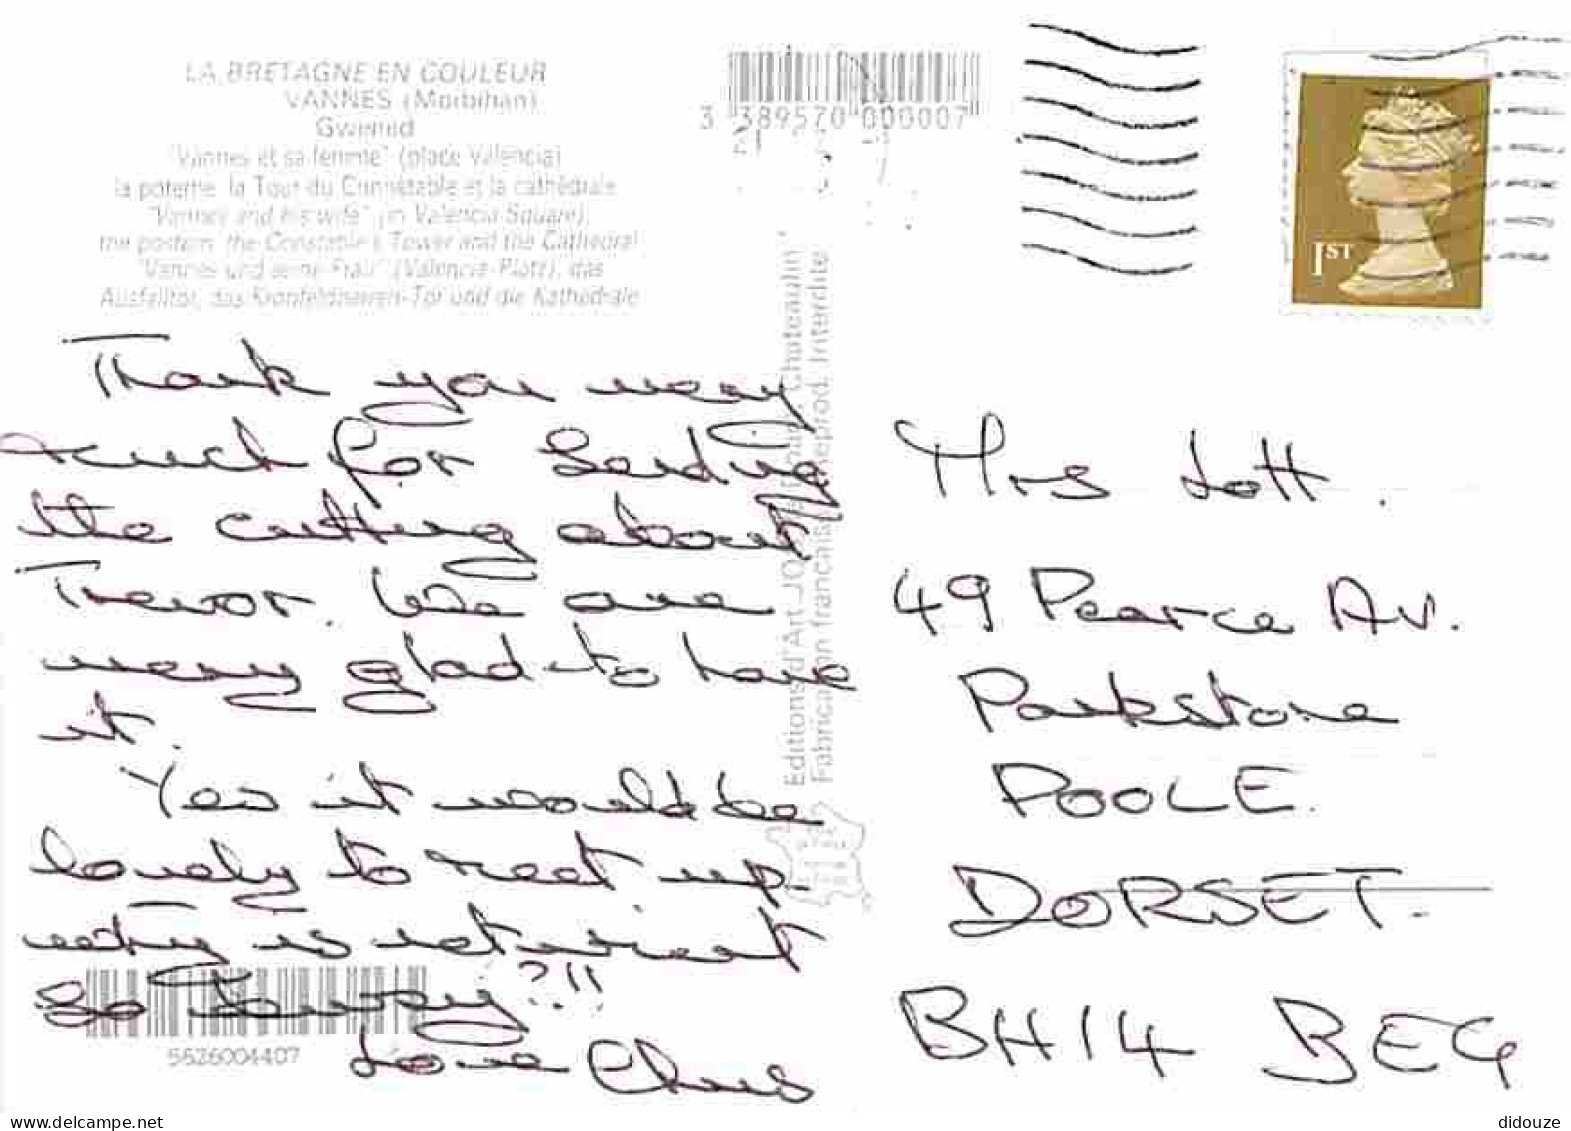 LA BRETAGNE EN COULEUR
VANNES (Morbihan)
Gwened
"Vannes et sa femme" (place Valencia)
la poterne, la Tour du Connétable et la cathédrale
"Vannes and his wife" (in Valencia Square),
the postern, the Constable's Tower and the Cathedral
"Vannes und seine Frau" (Valencia-Platz), das
Ausfalltor, das Kronfeldherren-Tor und die Kathedrale
3 389570 000007
1ST
Editions d'Art JOS Châteaulin
Fabrication française Reprod. Interdite
Thank you very
much for sending
the cutting about
Trevor. We are
very glad to have
it.
Yes it would be
lovely to meet up.
Why is retirement
so busy?!!
Love Chris
5626004407
Mrs Lott.
49 Pearce Av.
Parkstone
POOLE.
DORSET.
BH14 8EG
didouze